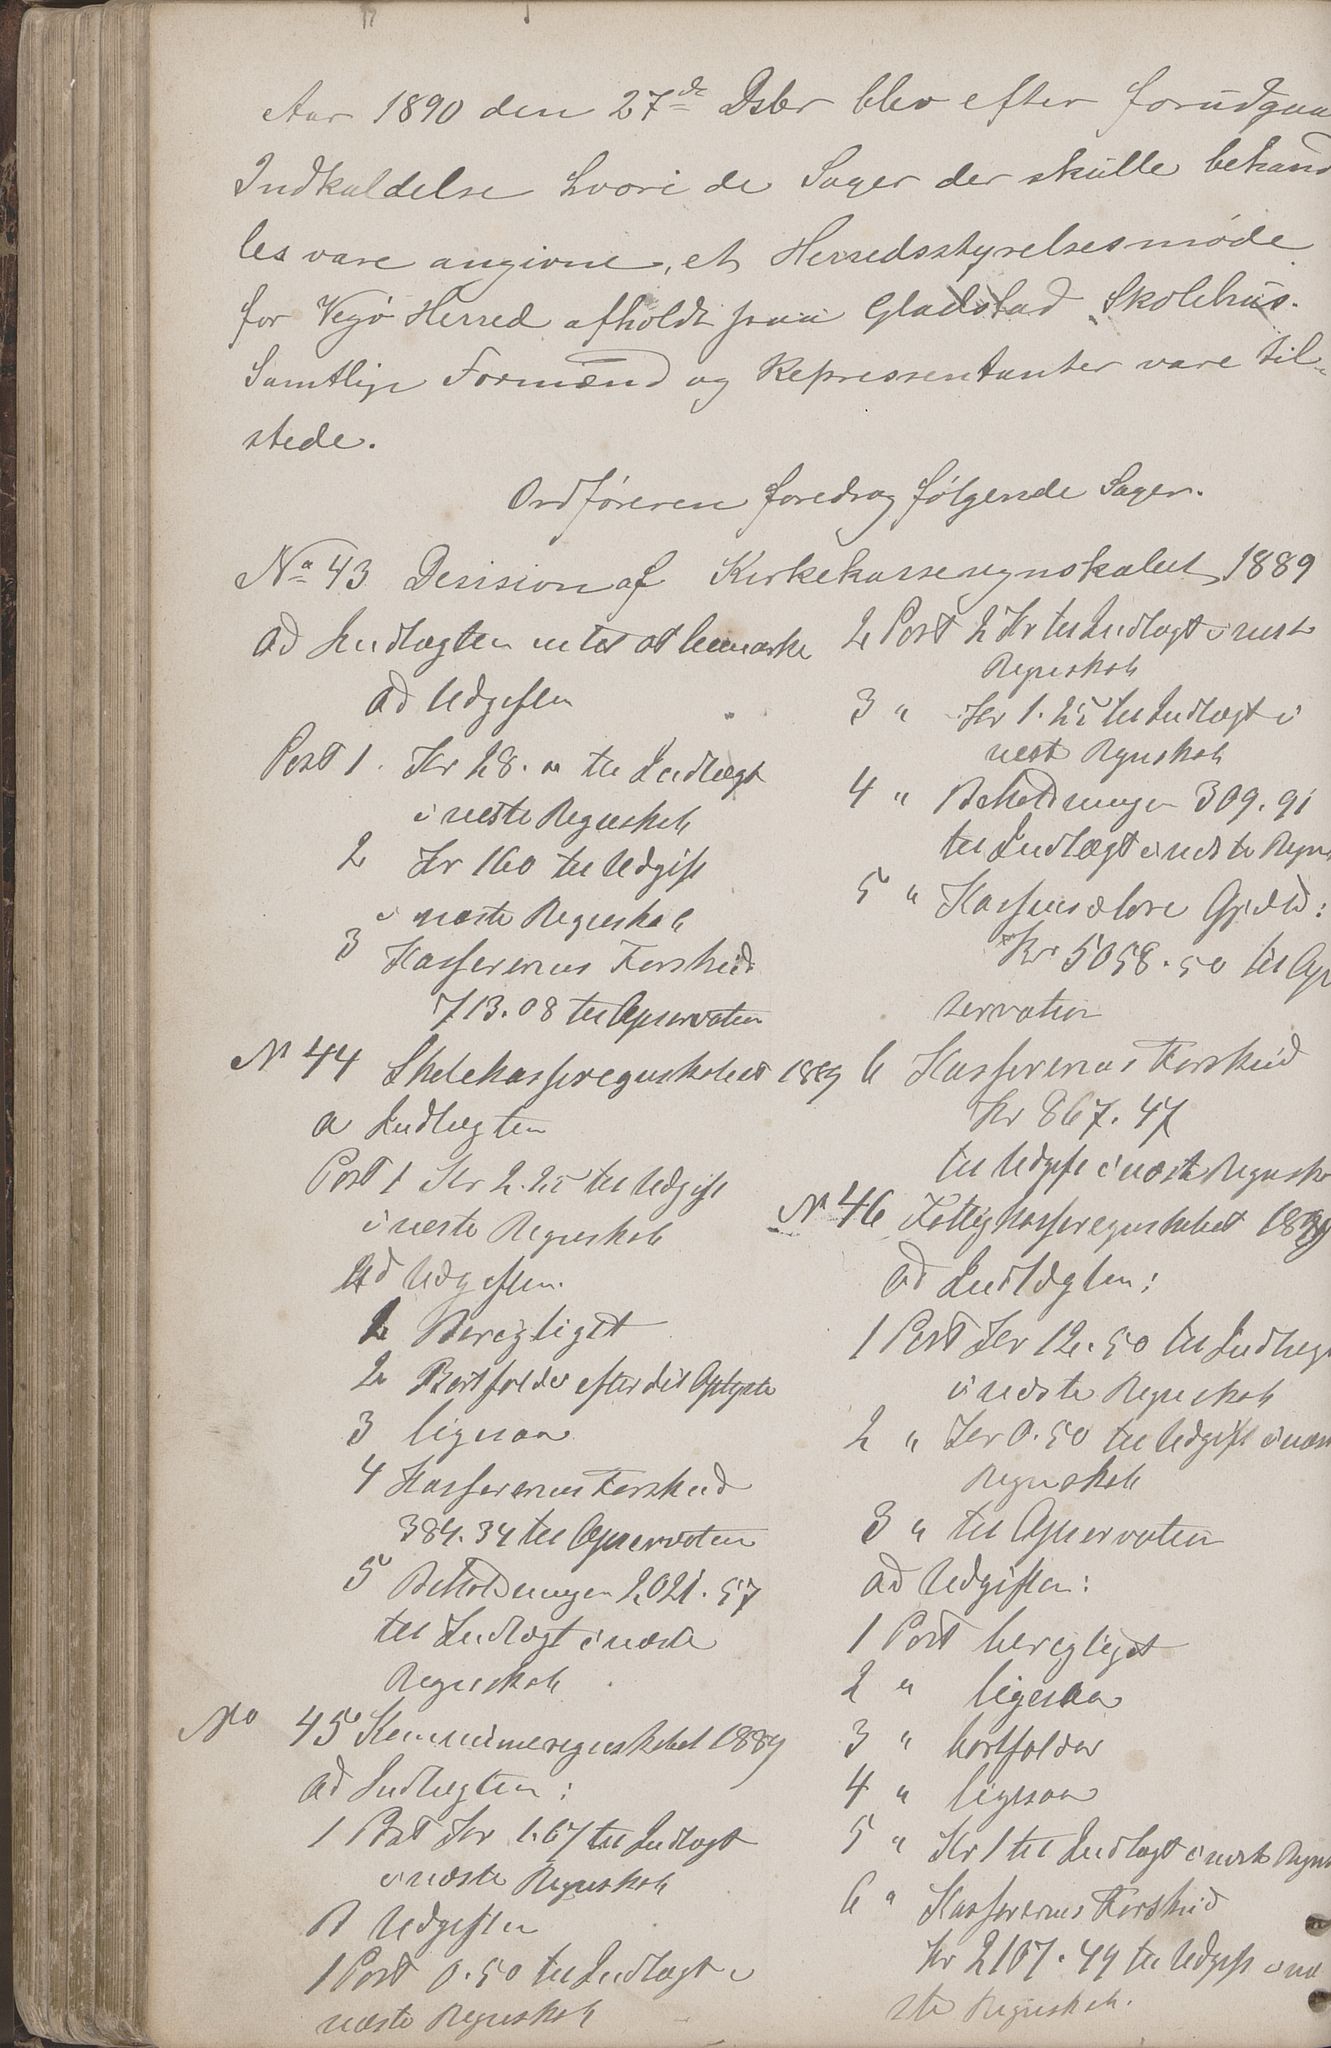 Aar 1890 den 27de Dsbr blev efter forudgaa
Indkaldelse hvori de Sager der skulle behand
les vare angivne, et Herredsstyrelsesmøde
for Vegø Herred afholdt paa Gladstad Skolehus.
Samtlige Formænd og Repressentanter vare til-
stede.
Ordføreren foredrog følgende Sager.
No 43 Desision af Kirkekasseregnskabet 1889
ad Indtægten intet at bemærke
ad Udgiften
Post 1. Kr 28. " til Indtægt
i næste Regnskab
2 Kr 160 til Udgift
i næste Regnskab
3 Kassererens Forskud
713.08 til Opservation
No 44 Skolekasseregnskabet 1889
a Indtægten
Post 1 Kr 2.25 til Udgift
i næste Regnskab
Ad Udgiften
1 Berigtiget
2 Bortfalder efter det Oplyste
3 ligesaa
4 Kassererens Forskud
384.34 til Opservation
5 Beholdningen 2021.57
til Indtægt i næste
Regnskab
No 45 Kommuneregnskabet 1889
ad Indtægten:
1 Post Kr 1.67 til Indtægt
i næste Regnskab
A Udgiften
1 Post 0.50 til Indtægt i
næste Regnskab
2 Post 2 Kr til Indtægt i næste
Regnskab
3 " Kr 1.25 til Indtægt i
næst Regnskab
4 " Beholdningen 309.91
til Indtægt i næste Regns
5 " Kassens ældre Gjæld:
Kr 5058.50 til Op
servation
6 Kassererens Forskud
Kr 867.47
til Udgift i næste Regnska
No 46 Fattigkasseregnskabet 1889
ad Indtægten:
1 Post Kr 12.50 til Indtægt
i næste Regnskab
2 " Kr 0.50 til Udgift i næs
Regnskab
3 " til Opservation
ad Udgiften:
1 Post berigtiget
2 " ligesaa
3 " bortfalder
4 " ligesaa
5 " Kr 1 til Indtægt i næste Regns
6 " Kassererens Forskud
Kr 2107.49 til Udgift i næ
ste Regnskab.